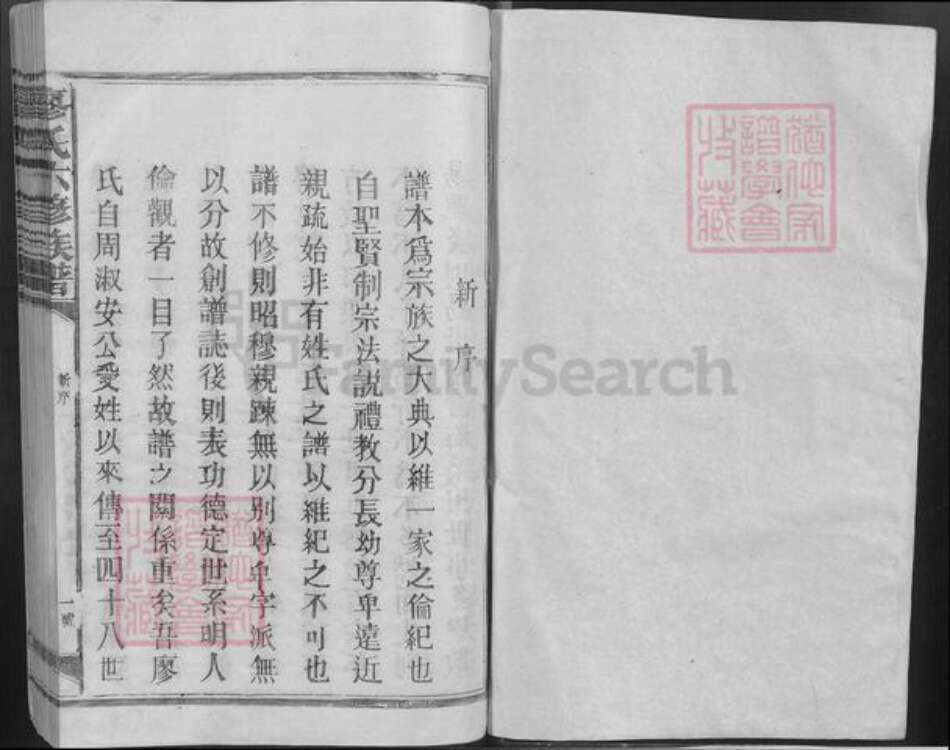 新序
譜本爲宗族之大典以維一家之倫紀也
自聖賢制宗法說禮教分長幼尊卑遠近
親疏始非有姓氏之譜以維紀之不可也
譜不修則昭穆親踈無以别尊卑字派無
以分故創譜誌後則表功德定世系明人
倫觀者一目了然故譜之關係重矣吾廖
氏自周淑安公愛姓以來傳至四十八世
廖氏六修族譜
新序
一號
FamilySearch